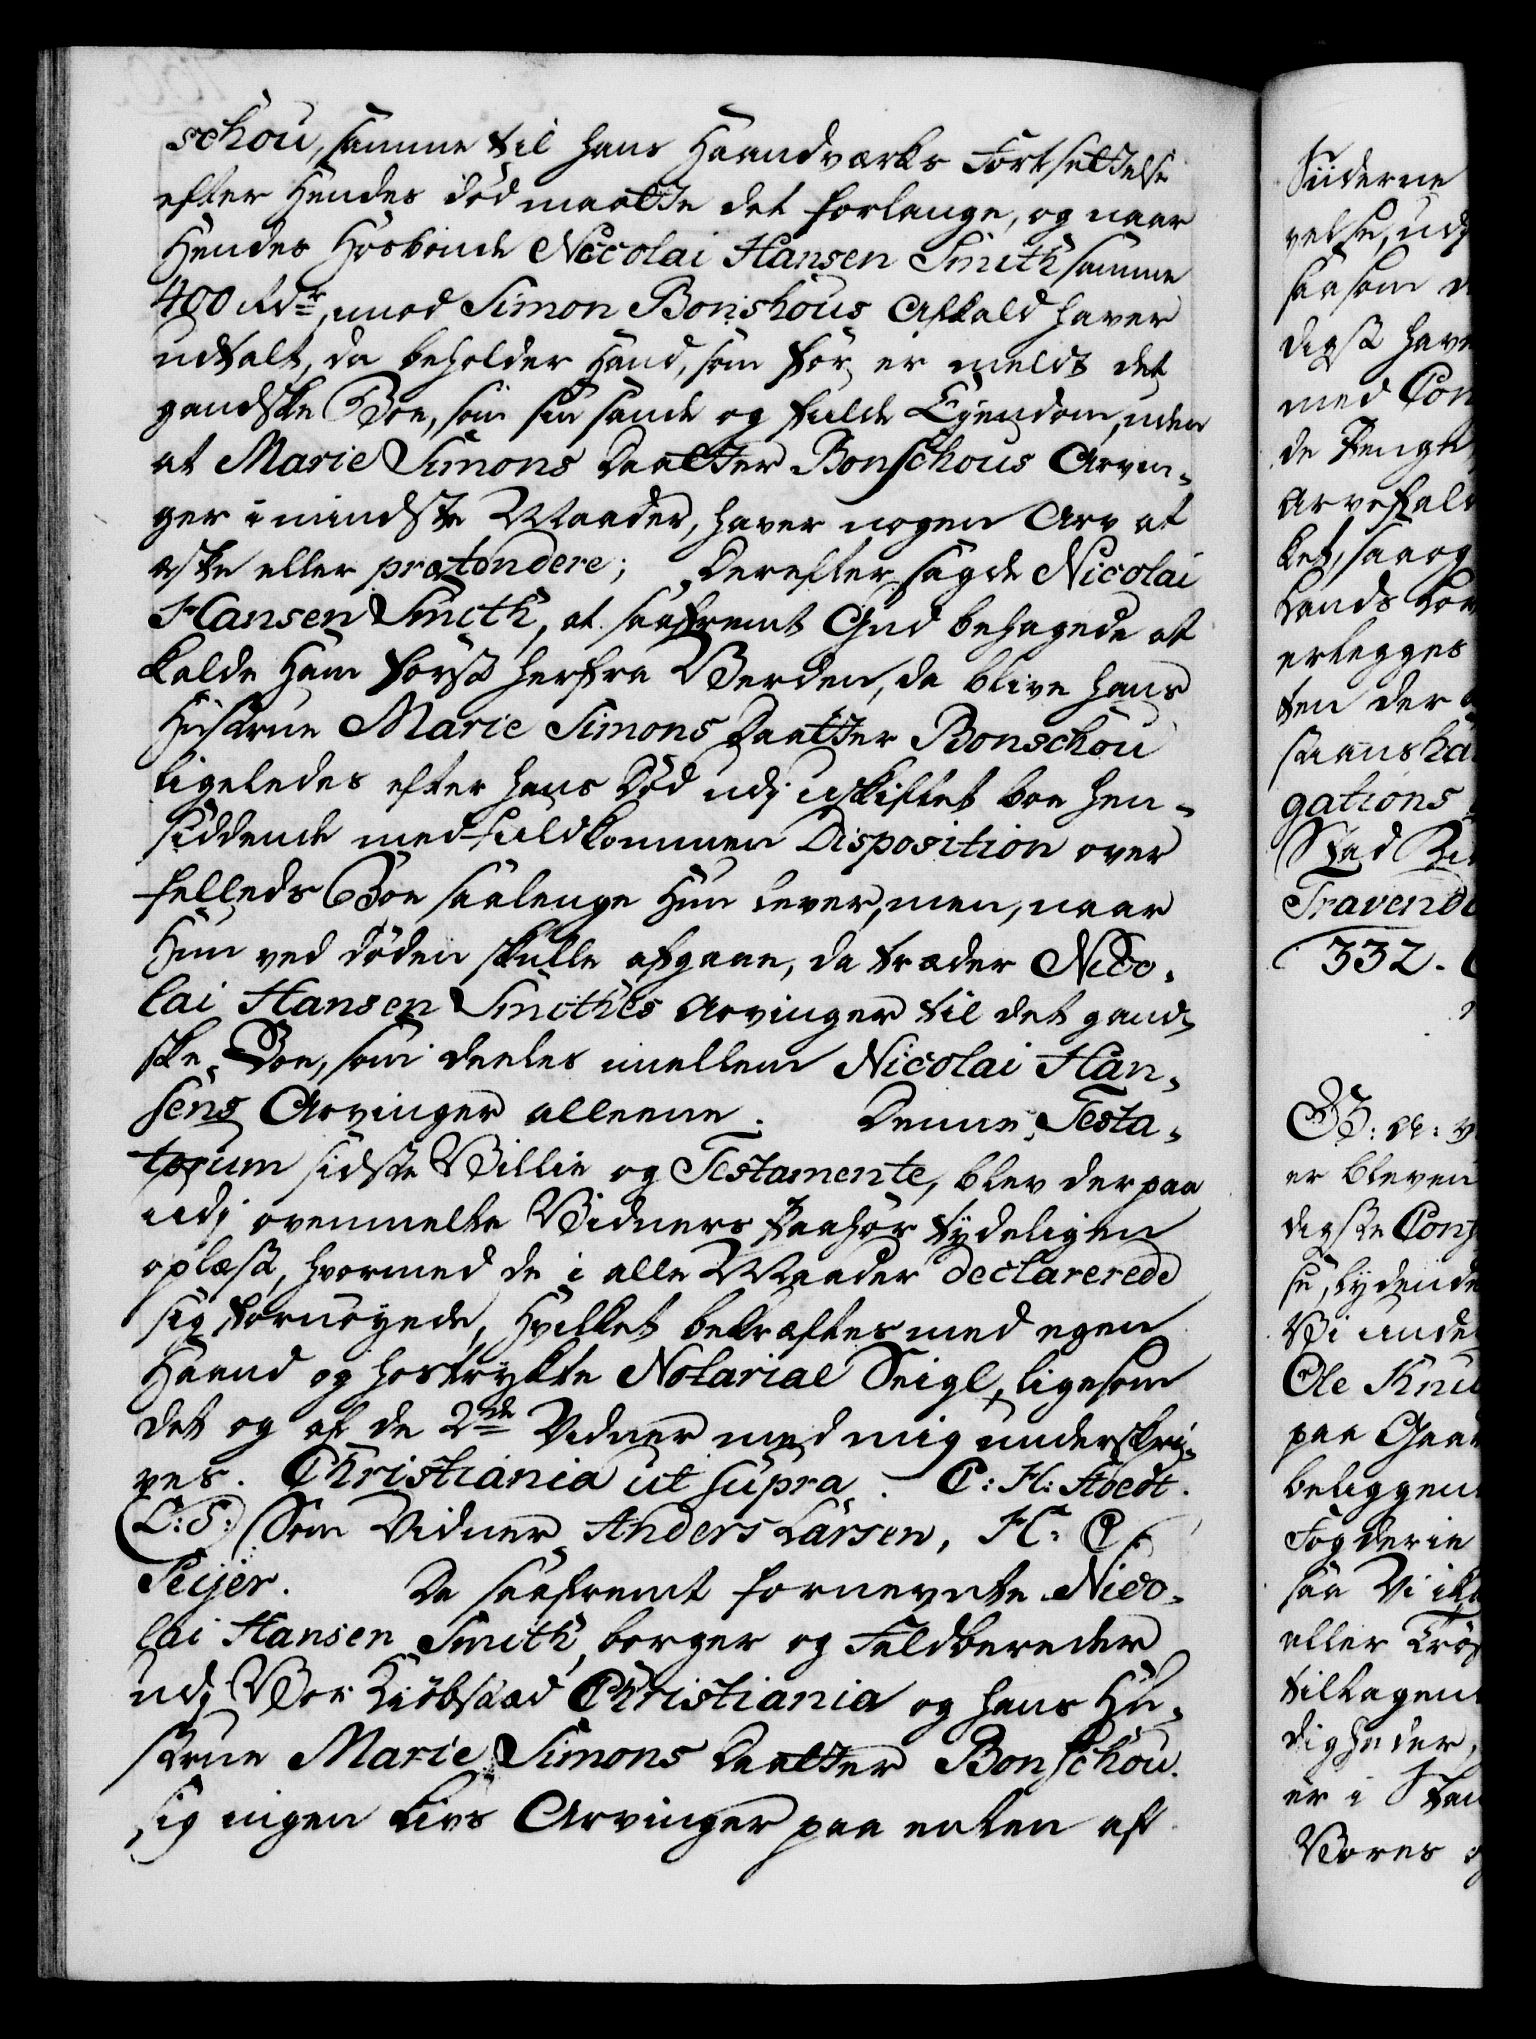 schou, samme til hans Haandværks Fortsettelse
efter Hendes död maatte det forlange, og naar
Hendes Hosbonde Nicolai Hansen Smith samme
400 Rdr, mod Simon Bonschous Afkald haver
udtalt, da beholder Hand, som för er meldt det
gandske Boe, som sin sande og fulde Eyendom, uden
at Marie Simons Daatter Bonschous Arvin-
ger i mindste Maader, haver nogen Arv at
æske eller prætendere; Derefter sagde Nicolai
Hansen Smith, at saafremt Gud behagede at
kalde Ham först herfra Verden, da blive hans
Hustrue Marie Simons Daatter Bonschou
ligeledes efter hans Död udj uskiftet boe hen-
siddende med fuldkommen Disposition over
felleds Boe saalenge Hun lever, men, naar
Hun ved döden skulle afgaae, da træder Nico-
lai Hansen Smithes Arvinger til det gand-
ske Boe, som deeles imellem Nicolai Han-
sens Arvinger alleene. Denne Testa-
torum sidste Villie og Testamente, blev derpaa
udj ovenmelte Vidners Paahör tydeligen
oplæst, hvormed de i alle Maader declarerede
sig fornöyede, Hvilket bekræftes med egen
Haand og hostrykte Notarial Seigl, ligesom
det og af de 2de Vidner med mig underskri-
ves. Christiania ut supra. C: H: Stoedt.
(L: S:) Som Vidner Anders Larsen, H: C
Peijer. Da saafremt fornevnte Nico-
lai Hansen Smith, borger og Feldbereder
udj Vor Kiöbstad Christiania og hans Hu-
strue Marie Simons Daatter Bonschou.
sig ingen Livs Arvinger paa enten af
Siiderne
velse, udj
saasom
digst have
med Con
de Penge
Arvefald
ket, saa og
Lands Lov
erlegges
ten der
gations
Stad
Travend
332.
G: A: V
er bleven
digste Conf
se, lydende
Vi unde
Ole Knu
paa Gaar
beliggen
Fogderie
saa Vi ik
eller Trös
tiltagen
digheder,
er i Stan
Vores